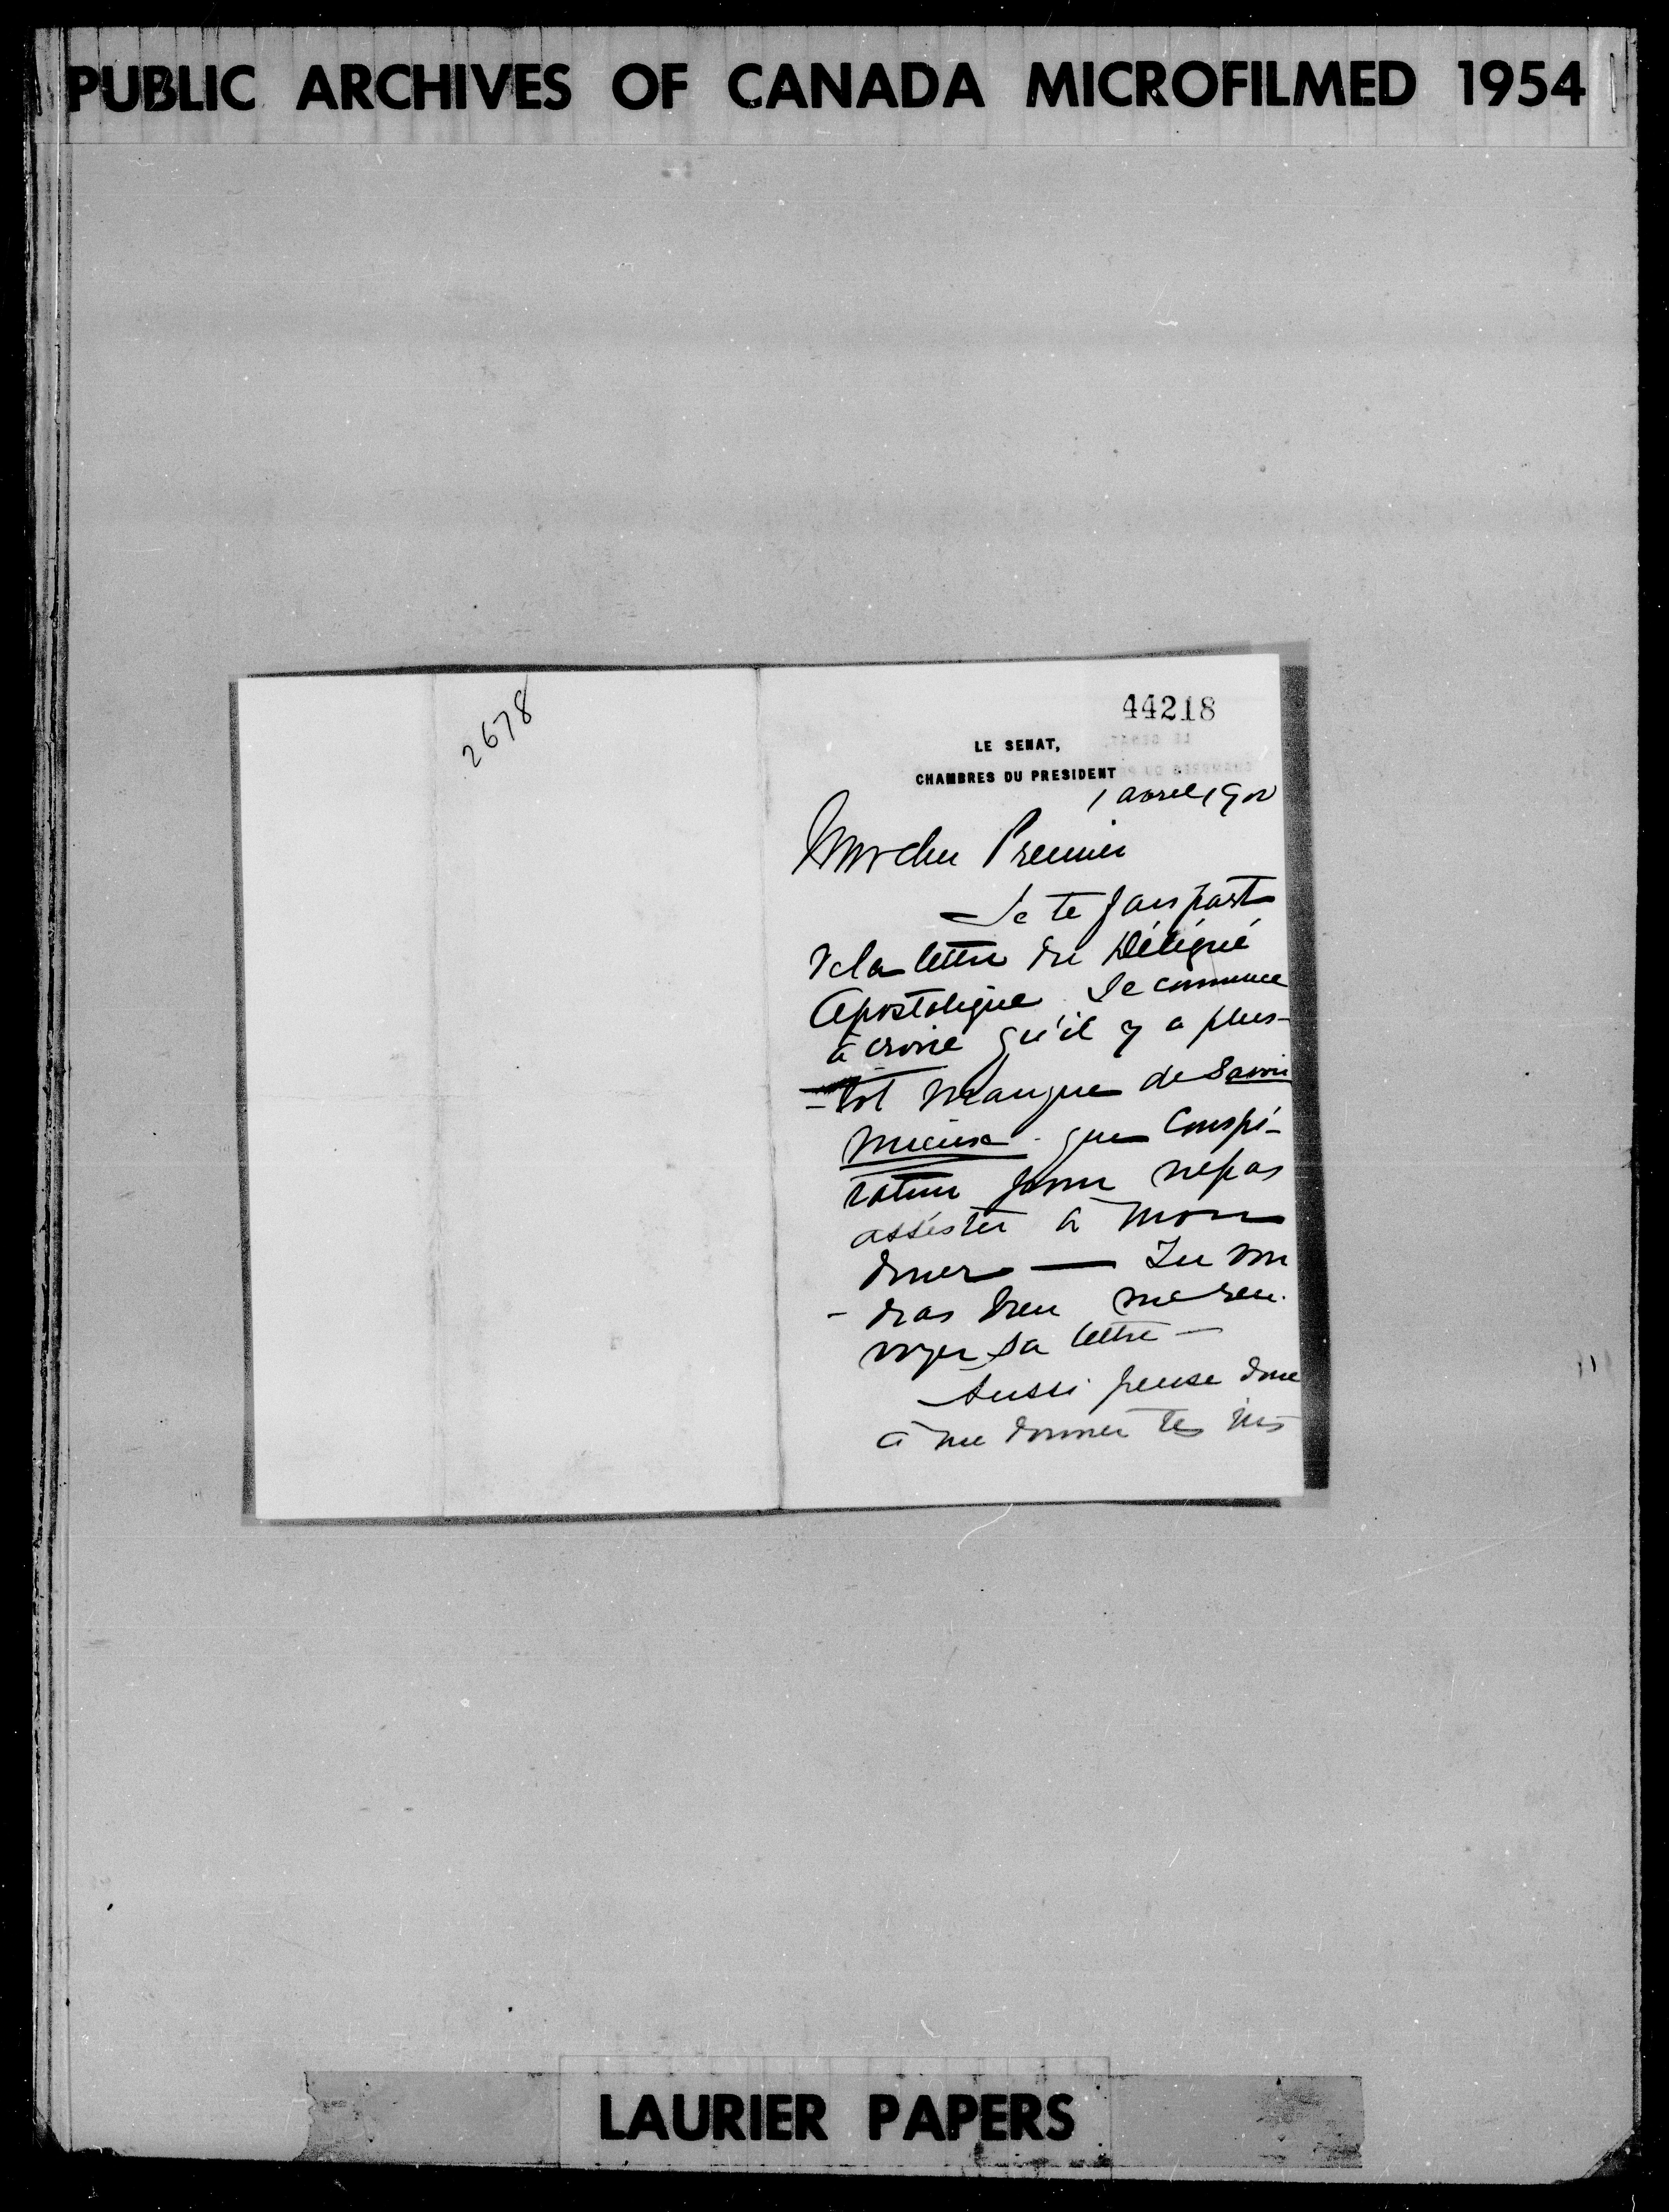 PUBLIC ARCHIVES OF CANADA MICROFILMED 1954
2678
44218
LE SENAT,
CHAMBRES DU PRESIDENT
1 avril 1902
Mon cher Premier
Je te fais part
de la lettre du Délégué
Apostolique. Je commence
à croire qu'il y a plus-
-tot manque de Savoir
mieux que Conspi-
ration pour ne pas
assister à mon
diner — Tu vou
- dras bien me ren-
voyer sa lettre —
Aussi pense donc
à me donner tes
LAURIER PAPERS